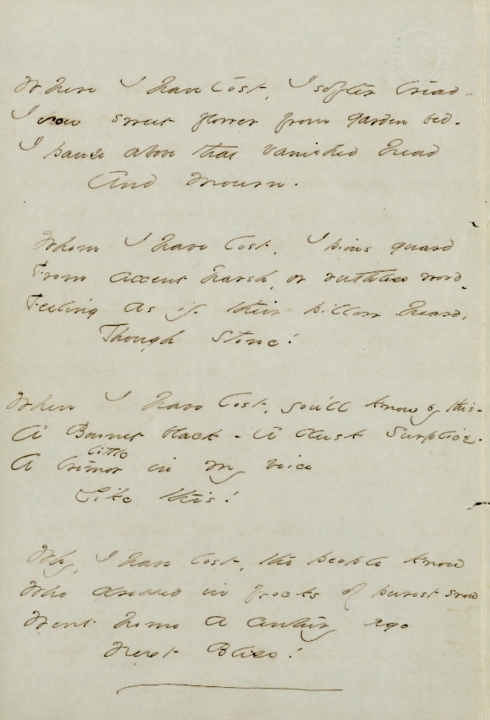 Where I have lost, I softer tread -
I sow sweet flower from garden bed -
I pause above that vanished head
And mourn.
Whom I have lost, I pious guard
From accent harsh, or ruthless word -
Feeling as if their pillow heard,
Though Stone!
When I have lost, you'll know by this -
A Bonnet black - A dusk Surplice -
A little tremor in my voice
Like this!
Why, I have lost, the people know
Who dressed in frocks of purest snow
Went home a century ago
Next Bliss!